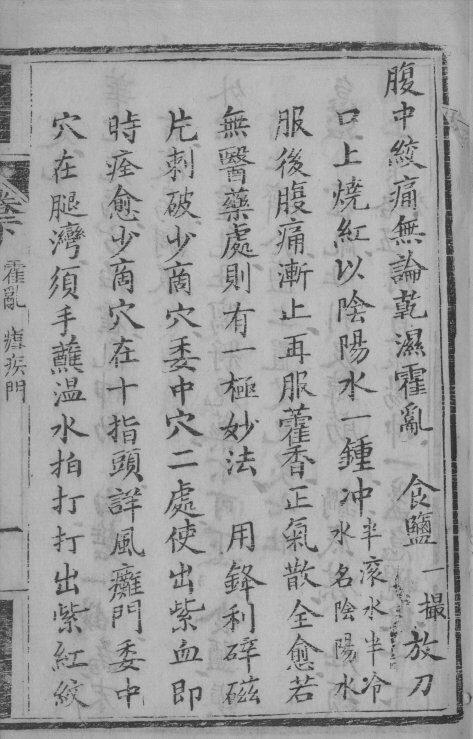 腹中絞痛無論乾濕霍亂　食鹽一撮放刀
口上燒紅以陰陽水一鍾冲半滾水半冷水名陰陽水
服後腹痛漸止再服藿香正氣散全愈若
無醫藥處則有一極妙法　用鋒利碎磁
片刺破少商穴委中穴二處使出紫血即
時痊愈少商穴在十指頭詳風癱門委中
穴在腿灣須手蘸温水拍打打出紫紅絞
卷下　霍亂　瘧疾門　一